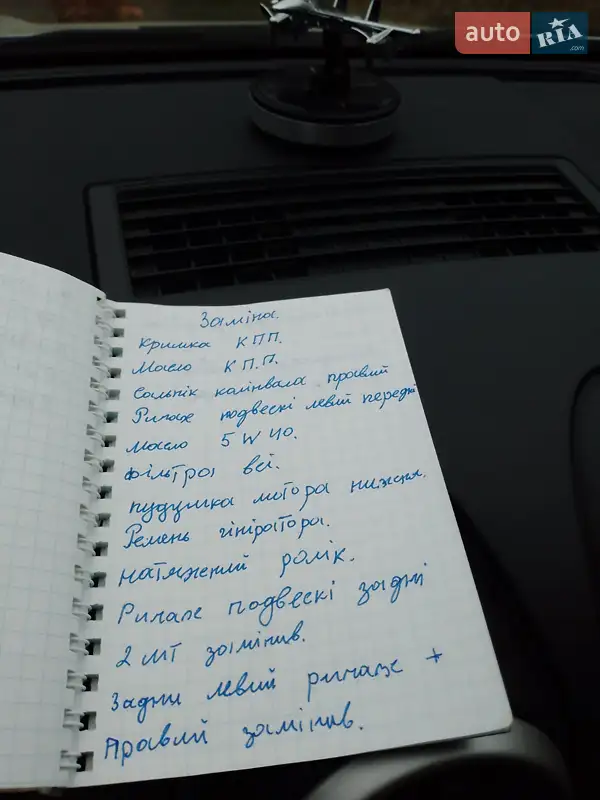 auto RIA .com
Заміна.
Кришка КПП.
Масло К П.П.
Сальнік калінвала правий
Ричаг подвескі левий передні
Масло 5 W 40.
Фільтра всі.
пудушка мотора нижня.
Ремень гініратора.
натяжений ролік.
Ричаг подвескі задні
2 шт замінив.
Задни левий ричаг +
правий замінив.